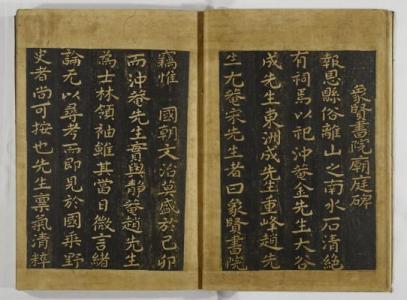 象賢書院廟庭碑
報恩縣俗離山之南水石清絶
有祠焉以祀沖庵金先生大谷
成先生東洲成先生重峰趙先
生尤庵宋先生者曰象賢書院
竊惟 國朝文治莫盛於己卯
而沖庵先生實與靜菴趙先生
為士林領袖雖其當日微言緒
論无以尋考而即見於國乘野
史者尚可按也先生禀氣清粹